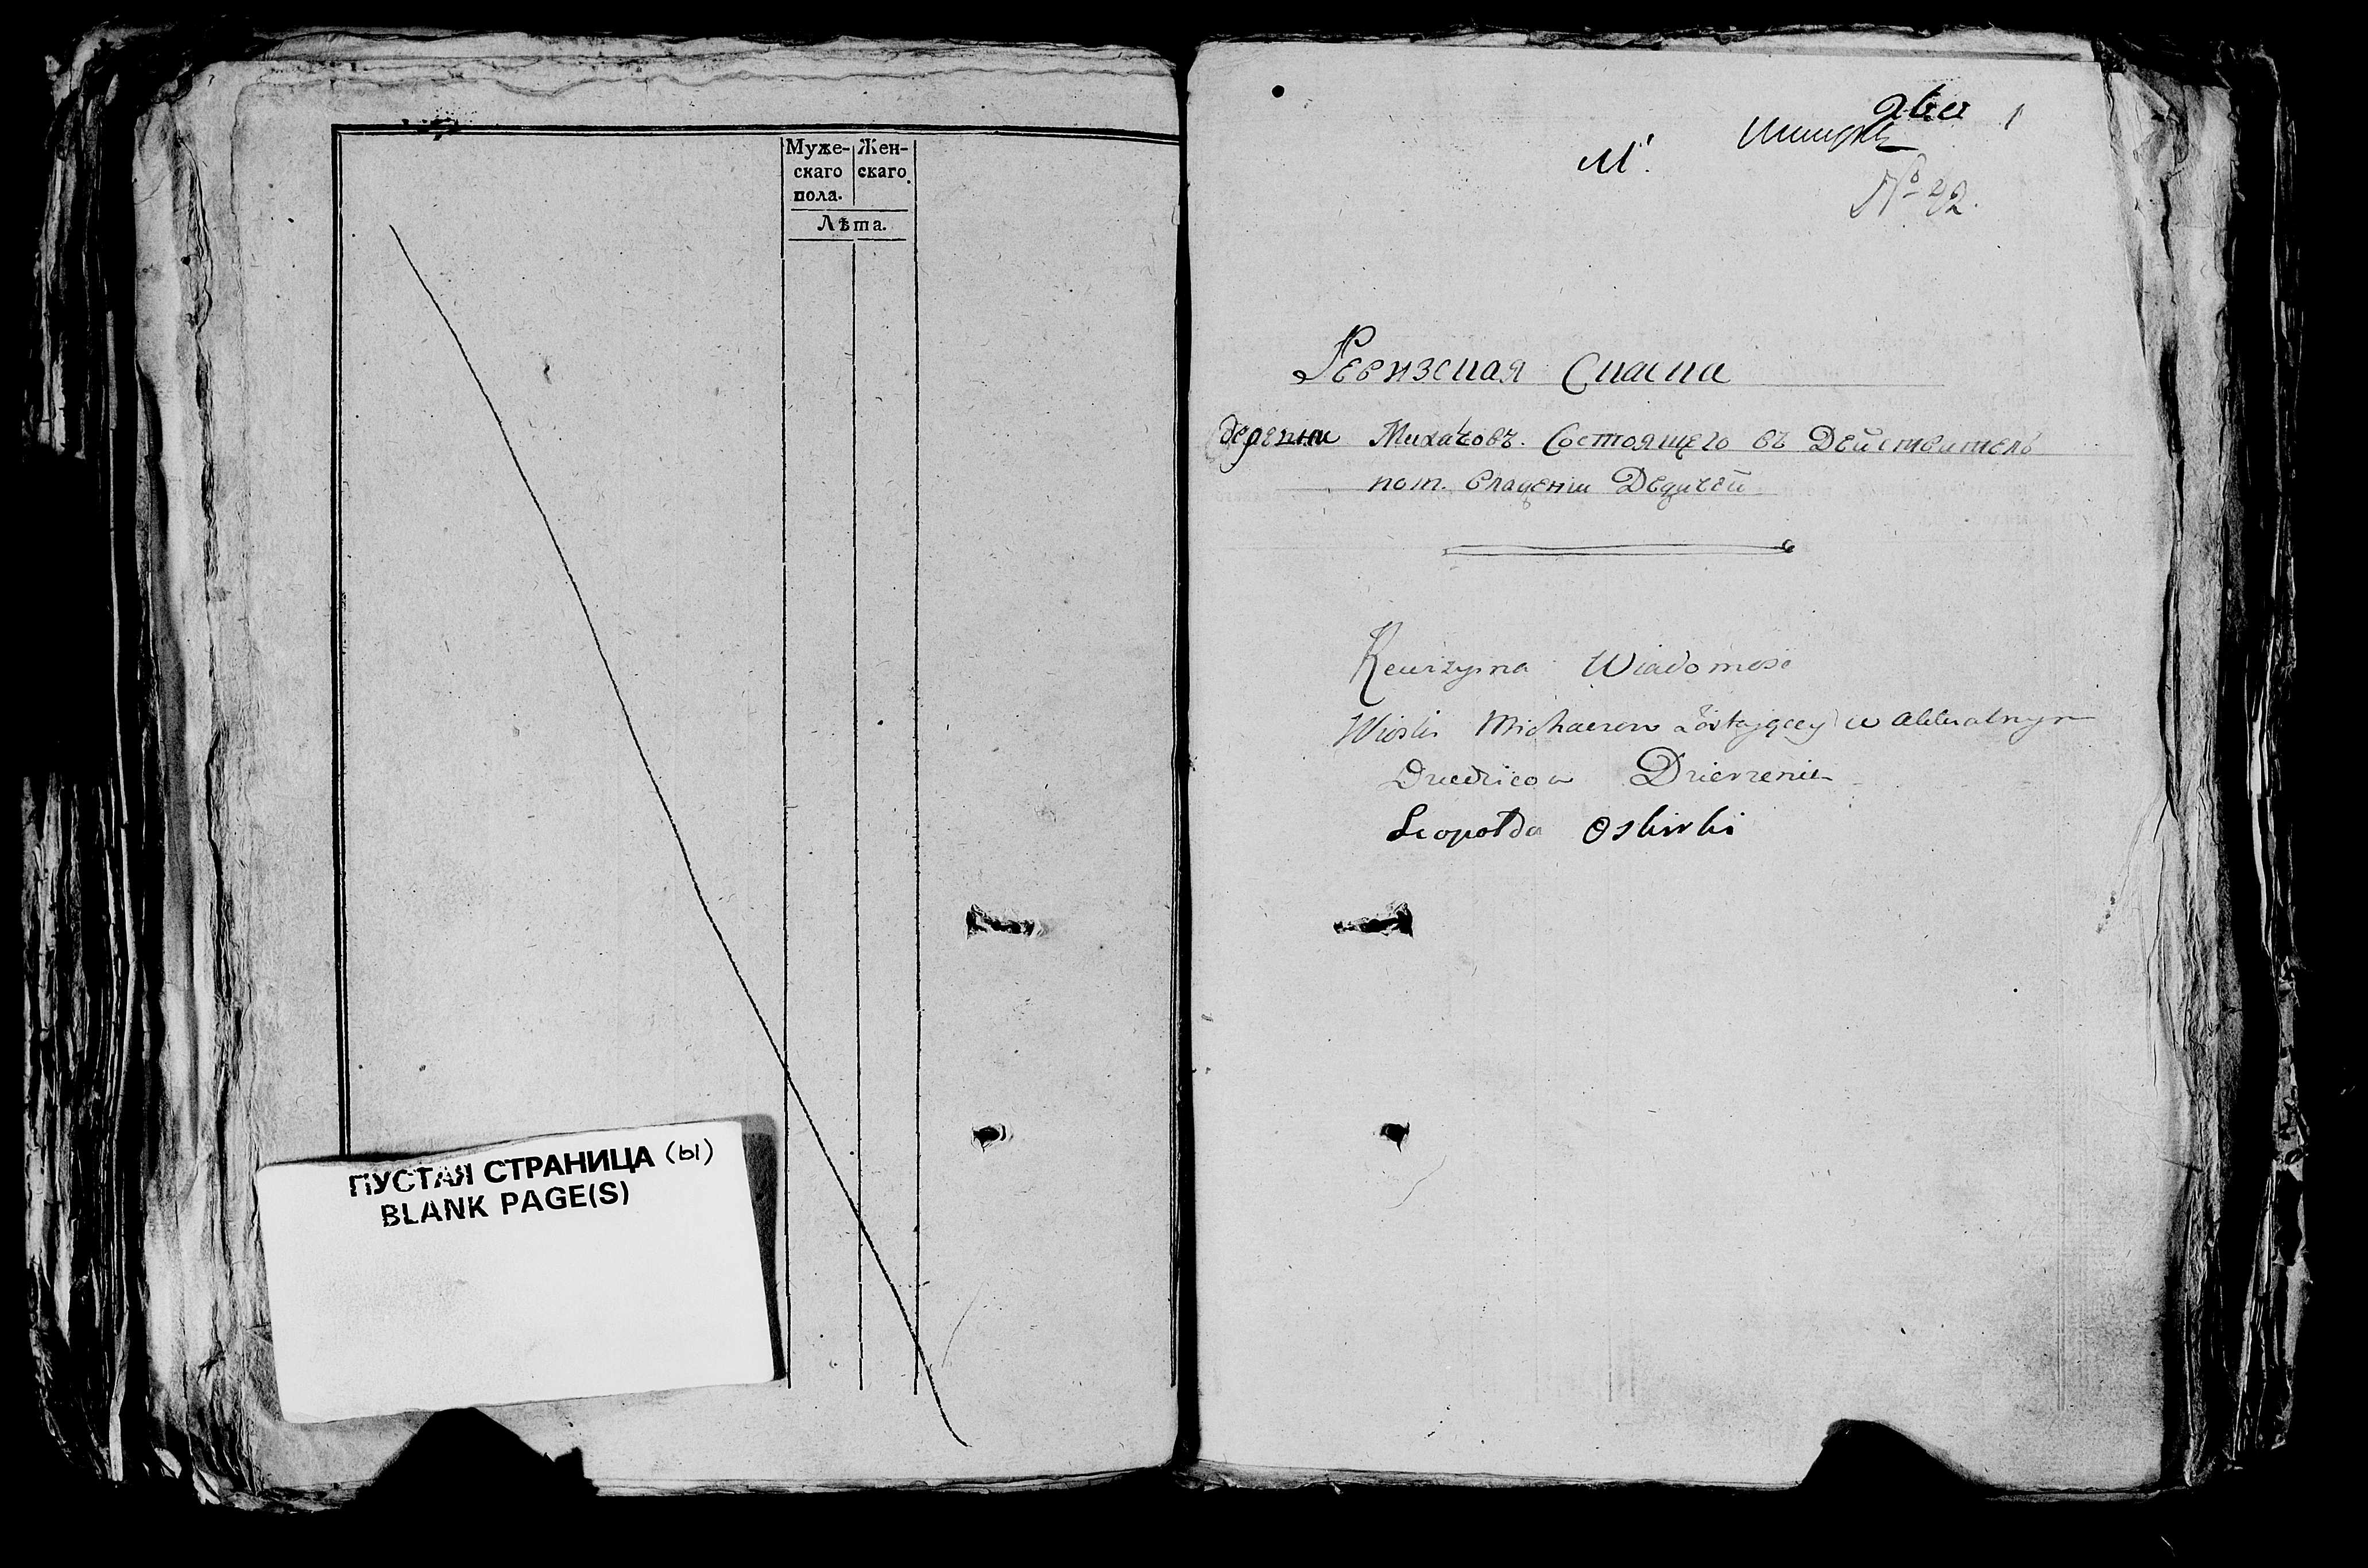 Муже- Жен-
скаго скаго
пола.
Лѣта.
ПУСТАЯ СТРАНИЦА (Ы)
BLANK PAGE(S)
два 1
М.
№ 92.
Ревизская Скаска
деревни Михачовъ. Состоящего въ Действитель
ном. владении Дедичей
Rewizyina Wiadomosc
Wioski Michaczow Zostaiącey w Aktualnym
Dziedzicow Dzierzeniu
Leopolda Oskirki